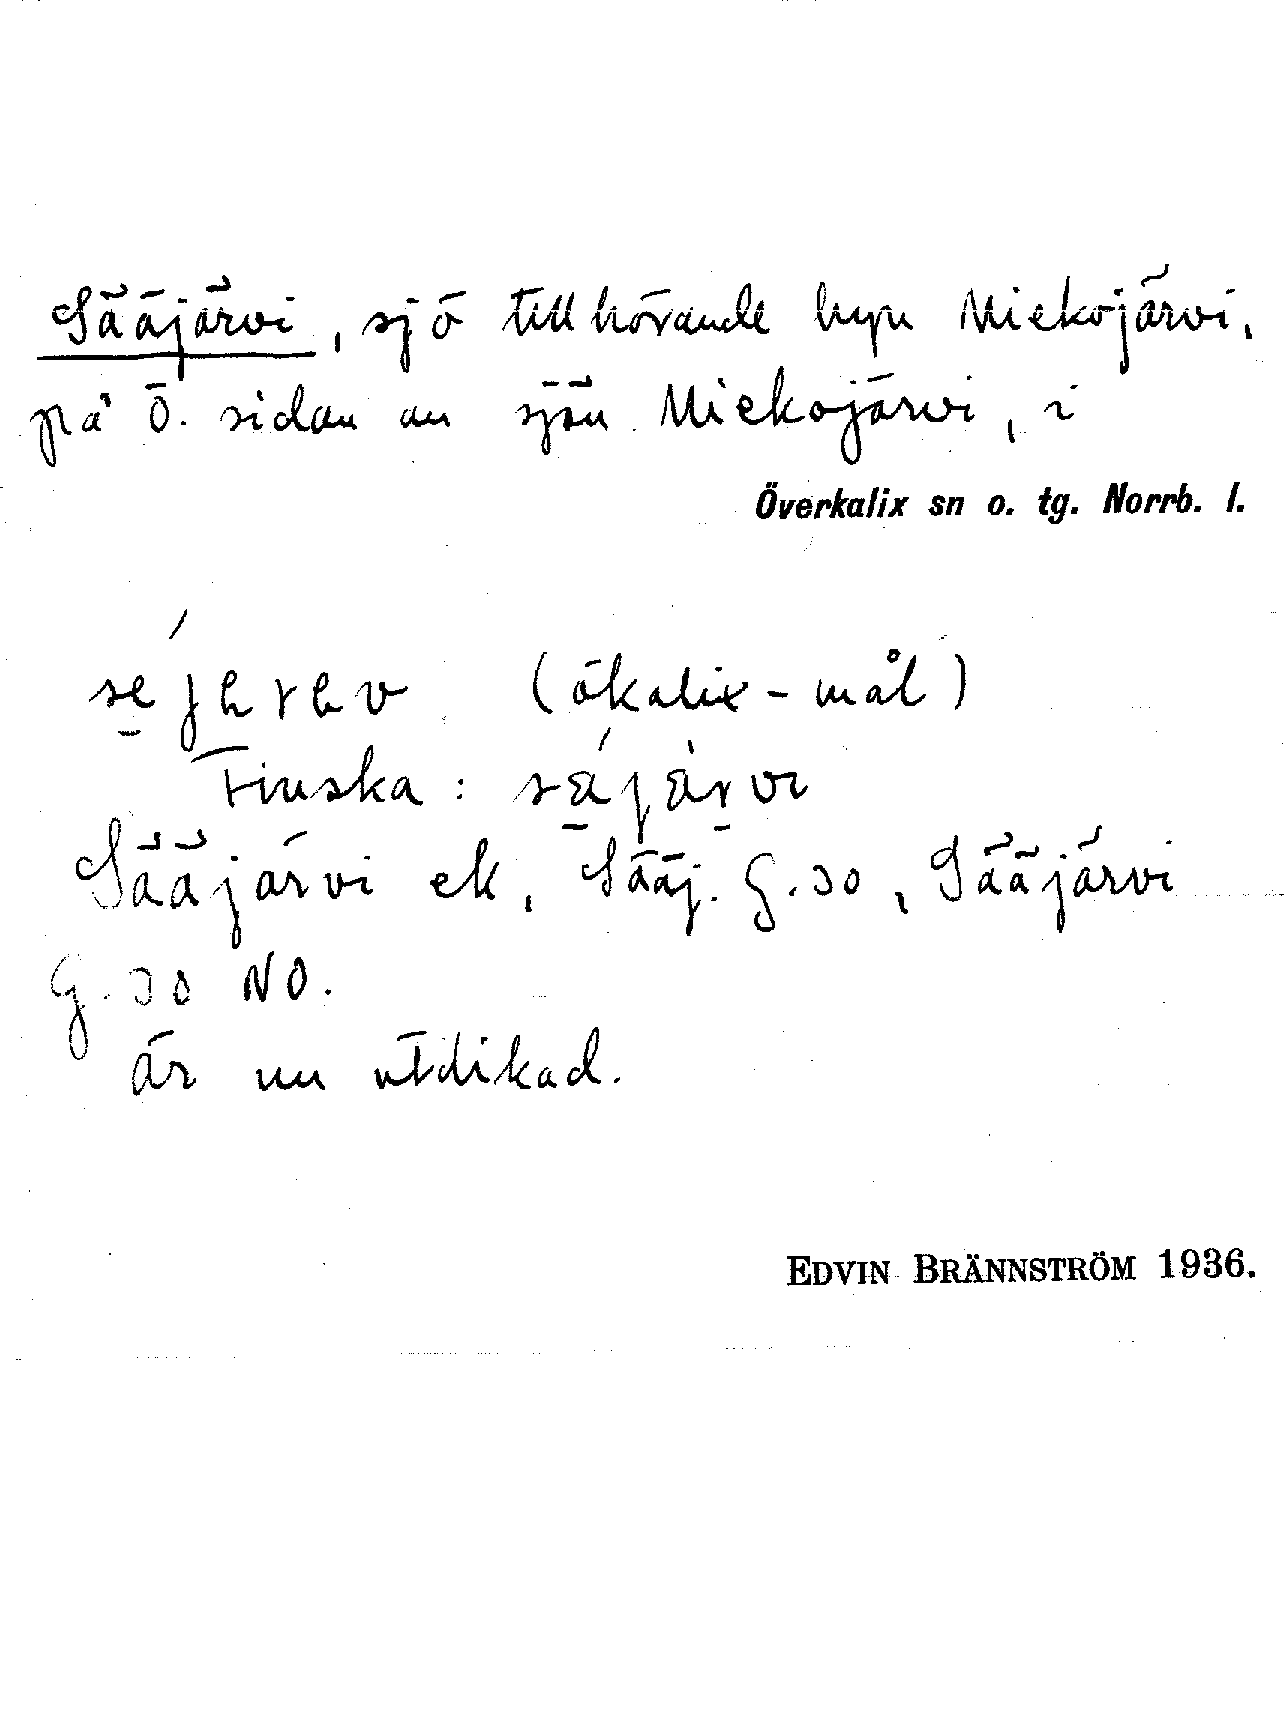 Sääjärvi, sjö tillhörande byn Miekojärvi,
på ö. sidan au sjön Miekojärvi, i
Överkalix sn o. tg. Norrb. l.
(ökalix-mål)
Finska:
Sääjärvi ek, Sääj. G.30, Sääjärvi
G.30 NO.
är nu utdikad.
EDVIN BRÄNNSTRÖM 1936.